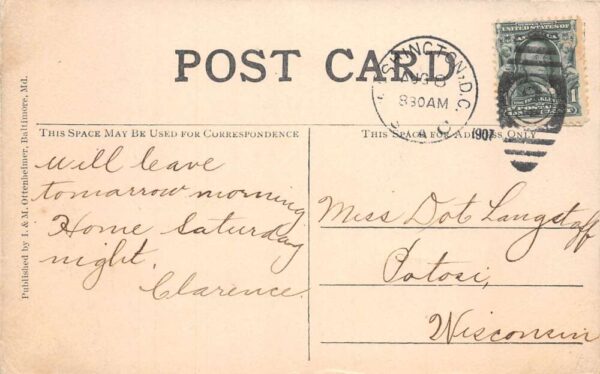 POST CARD
WASHINGTON, D.C.
AUG 8
830AM
1907
UNITED STATES OF AMERICA
THIS SPACE MAY BE USED FOR CORRESPONDENCE
THIS SPACE FOR ADDRESS ONLY
Will leave
tomarrow morning
Home Saturday
night.
Clarence.
Miss Dot Langstaff
Potosi,
Wisconsin
Published by I. & M. Ottenheimer, Baltimore, Md.